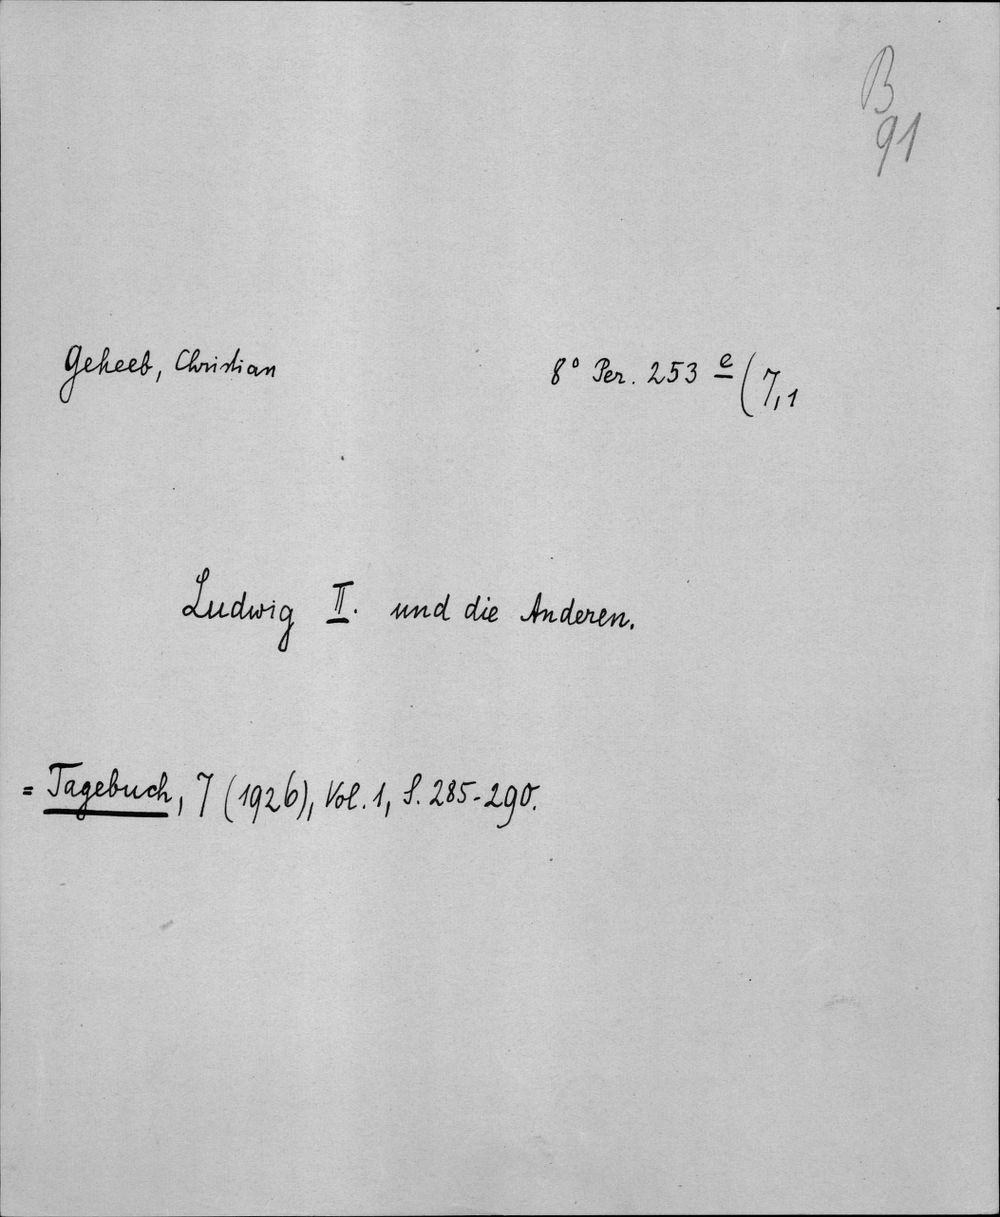 B
91
Geheeb, Christian
8° Per. 253 e (7,1
Ludwig II. und die Anderen.
= Tagebuch, 7 (1926), Vol. 1, S. 285-290.